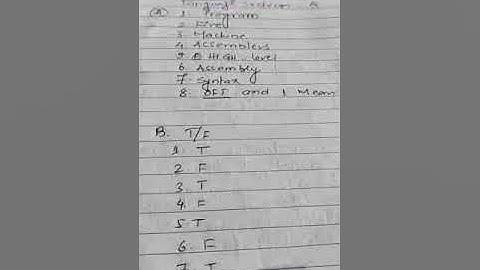 A 1. Program
2.
3. Machine
4. Assemblers
5. High level
6. Assembly
7. Syntax
8. OFF and 1 Mean
B. T/F
1 T
2 F
3 T
4 F
5 T
6 F
7 T